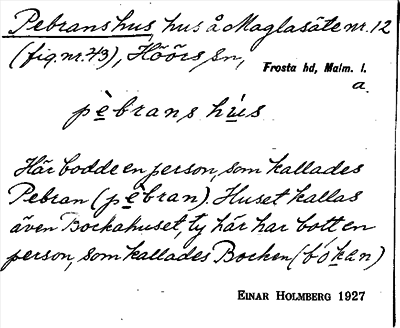 Pebranshus, hus å Maglasäte nr. 12
(fig. nr. 43), Höörs sn,
Frosta hd, Malm. l.
a.
pèbrans hús
Här bodde en person, som kallades
Pebran (pèbran). Huset kallas
även Bockahuset, ty här har bott en
person, som kallades Bocken (bókan)
EINAR HOLMBERG 1927